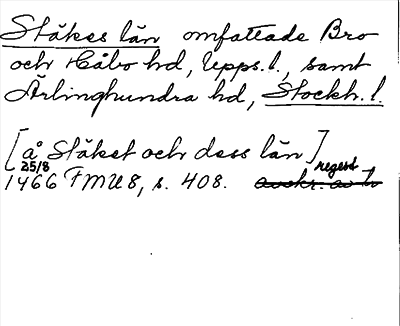 Stäkes län omfattade Bro
och Håbo hd, Upps. l., samt
Ärlinghundra hd, Stockh. l.
[å Stäket och dess län]
25/8 regest
1466 FMU 8, s. 408. avskr. av h